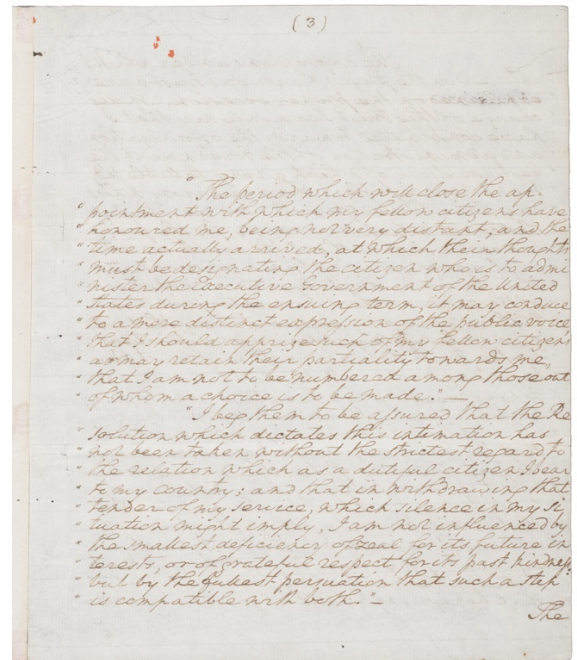 (3)
"The period which will close the ap-
" pointment with which my fellow citizens have
" honoured me, being not very distant, and the
" time actually arrived, at which their thoughts
" must be designating the citizen who is to admi
" nister the Executive Government of the United
" States during the ensuing term, it may conduce
" to a more distinct expression of the public voice
" that I should apprize such of my fellow citizens
" as may retain their partiality towards me,
" that I am not to be numbered among those out
" of whom a choice is to be made." —
"I beg them to be assured that the Re
" solution which dictates this intimation has
" not been taken without the strictest regard to
" the relation which as a dutiful citizen I bear
" to my country; and that in withdrawing that
" tender of my service, which silence in my si
" tuation might imply, I am not influenced by
" the smallest deficiency of zeal for its future in
" terests, or of grateful respect for its past kindness
" but by the fullest persuation that such a step
" is compatible with both." —
The